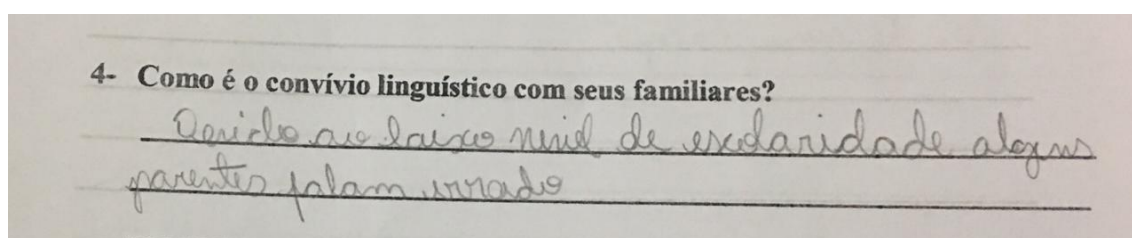 4- Como é o convívio linguístico com seus familiares?
Devido ao baixo nivel de escolaridade alguns
parentes falam errado